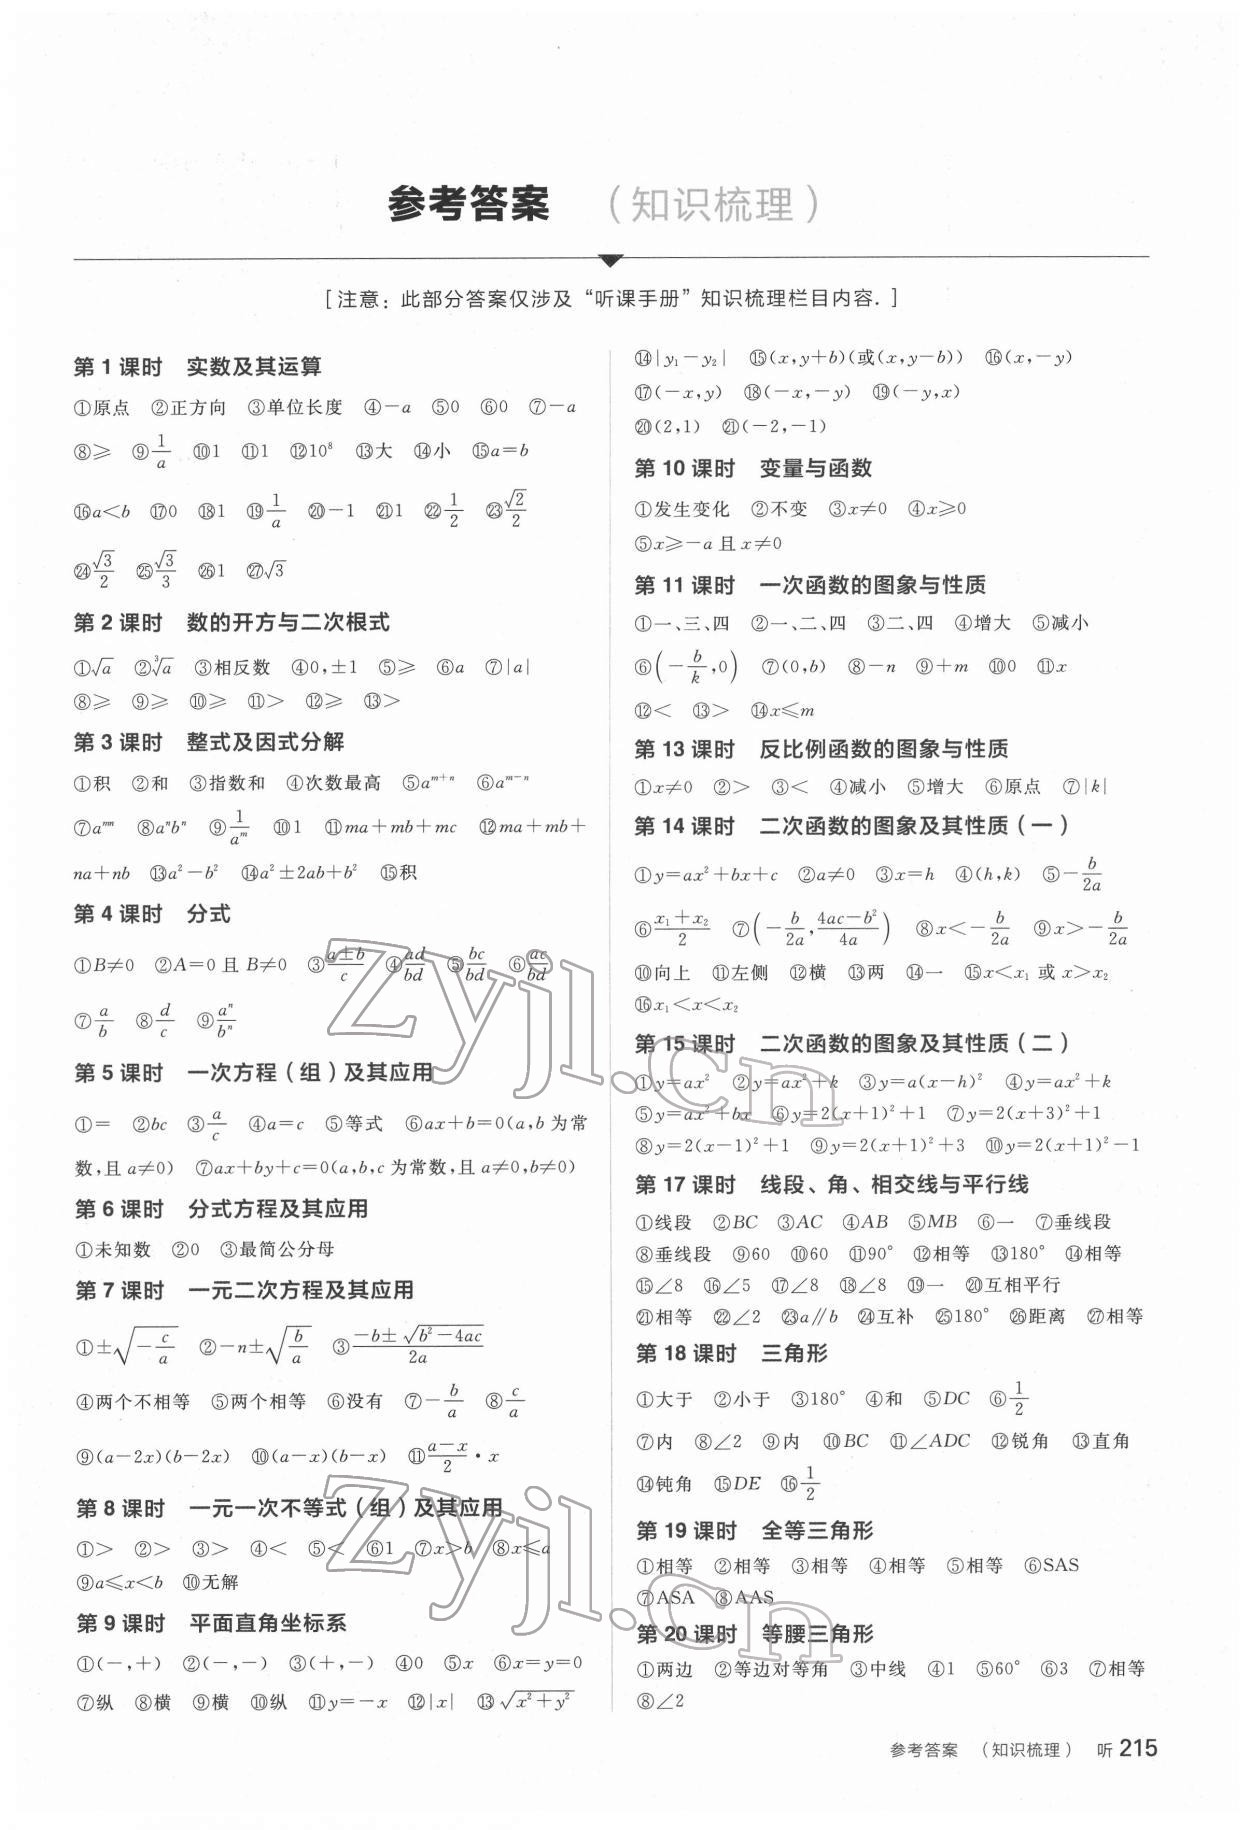 参考答案 （知识梳理）
［注意：此部分答案仅涉及“听课手册”知识梳理栏目内容.］
第1课时 实数及其运算
①原点 ②正方向 ③单位长度 ④－a ⑤0 ⑥0 ⑦－a
⑧≥ ⑨1/a ⑩1 ⑪1 ⑫10⁸ ⑬大 ⑭小 ⑮a=b
⑯a<b ⑰0 ⑱1 ⑲1/a ⑳－1 ㉑1 ㉒1/2 ㉓√2/2
㉔√3/2 ㉕√3/3 ㉖1 ㉗√3
第2课时 数的开方与二次根式
①√a ②∛a ③相反数 ④0,±1 ⑤≥ ⑥a ⑦|a|
⑧≥ ⑨≥ ⑩≥ ⑪> ⑫≥ ⑬>
第3课时 整式及因式分解
①积 ②和 ③指数和 ④次数最高 ⑤aᵐ⁺ⁿ ⑥aᵐ⁻ⁿ
⑦aᵐⁿ ⑧aⁿbⁿ ⑨1/aᵐ ⑩1 ⑪ma+mb+mc ⑫ma+mb+
na+nb ⑬a²－b² ⑭a²±2ab+b² ⑮积
第4课时 分式
①B≠0 ②A=0且B≠0 ③(a±b)/c ④ad/bd ⑤bc/bd ⑥ac/bd
⑦a/b ⑧d/c ⑨aⁿ/bⁿ
第5课时 一次方程（组）及其应用
①= ②bc ③a/c ④a=c ⑤等式 ⑥ax+b=0(a,b为常
数,且a≠0) ⑦ax+by+c=0(a,b,c为常数,且a≠0,b≠0)
第6课时 分式方程及其应用
①未知数 ②0 ③最简公分母
第7课时 一元二次方程及其应用
①±√(－c/a) ②－n±√(b/a) ③(－b±√(b²－4ac))/2a
④两个不相等 ⑤两个相等 ⑥没有 ⑦－b/a ⑧c/a
⑨(a－2x)(b－2x) ⑩(a－x)(b－x) ⑪(a－x)/2·x
第8课时 一元一次不等式（组）及其应用
①> ②> ③> ④< ⑤< ⑥1 ⑦x>b ⑧x≤a
⑨a≤x<b ⑩无解
第9课时 平面直角坐标系
①(－,+) ②(－,－) ③(+,－) ④0 ⑤x ⑥x=y=0
⑦纵 ⑧横 ⑨横 ⑩纵 ⑪y=－x ⑫|x| ⑬√(x²+y²)
⑭|y₁－y₂| ⑮(x,y+b)(或(x,y－b)) ⑯(x,－y)
⑰(－x,y) ⑱(－x,－y) ⑲(－y,x)
⑳(2,1) ㉑(－2,－1)
第10课时 变量与函数
①发生变化 ②不变 ③x≠0 ④x≥0
⑤x≥－a且x≠0
第11课时 一次函数的图象与性质
①一、三、四 ②一、二、四 ③二、四 ④增大 ⑤减小
⑥(－b/k,0) ⑦(0,b) ⑧－n ⑨+m ⑩0 ⑪x
⑫< ⑬> ⑭x≤m
第13课时 反比例函数的图象与性质
①x≠0 ②> ③< ④减小 ⑤增大 ⑥原点 ⑦|k|
第14课时 二次函数的图象及其性质（一）
①y=ax²+bx+c ②a≠0 ③x=h ④(h,k) ⑤－b/2a
⑥(x₁+x₂)/2 ⑦(－b/2a,(4ac－b²)/4a) ⑧x<－b/2a ⑨x>－b/2a
⑩向上 ⑪左侧 ⑫横 ⑬两 ⑭一 ⑮x<x₁或x>x₂
⑯x₁<x<x₂
第15课时 二次函数的图象及其性质（二）
①y=ax² ②y=ax²+k ③y=a(x－h)² ④y=ax²+k
⑤y=ax²+bx ⑥y=2(x+1)²+1 ⑦y=2(x+3)²+1
⑧y=2(x－1)²+1 ⑨y=2(x+1)²+3 ⑩y=2(x+1)²－1
第17课时 线段、角、相交线与平行线
①线段 ②BC ③AC ④AB ⑤MB ⑥一 ⑦垂线段
⑧垂线段 ⑨60 ⑩60 ⑪90° ⑫相等 ⑬180° ⑭相等
⑮∠8 ⑯∠5 ⑰∠8 ⑱∠8 ⑲一 ⑳互相平行
㉑相等 ㉒∠2 ㉓a∥b ㉔互补 ㉕180° ㉖距离 ㉗相等
第18课时 三角形
①大于 ②小于 ③180° ④和 ⑤DC ⑥1/2
⑦内 ⑧∠2 ⑨内 ⑩BC ⑪∠ADC ⑫锐角 ⑬直角
⑭钝角 ⑮DE ⑯1/2
第19课时 全等三角形
①相等 ②相等 ③相等 ④相等 ⑤相等 ⑥SAS
⑦ASA ⑧AAS
第20课时 等腰三角形
①两边 ②等边对等角 ③中线 ④1 ⑤60° ⑥3 ⑦相等
⑧∠2
zyjl.cn
zyjl.cn
参考答案 （知识梳理） 听215